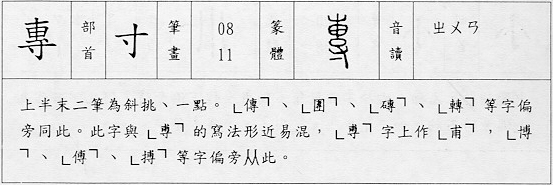 專 部首 寸 筆畫 08 11 篆體 專 音讀 ㄓㄨㄢ
上半末二筆為斜挑、一點。「傳」、「團」、「磚」、「轉」等字偏
旁同此。此字與「尃」的寫法形近易混,「尃」字上作「甫」,「博
」、「傅」、「搏」等字偏旁从此。